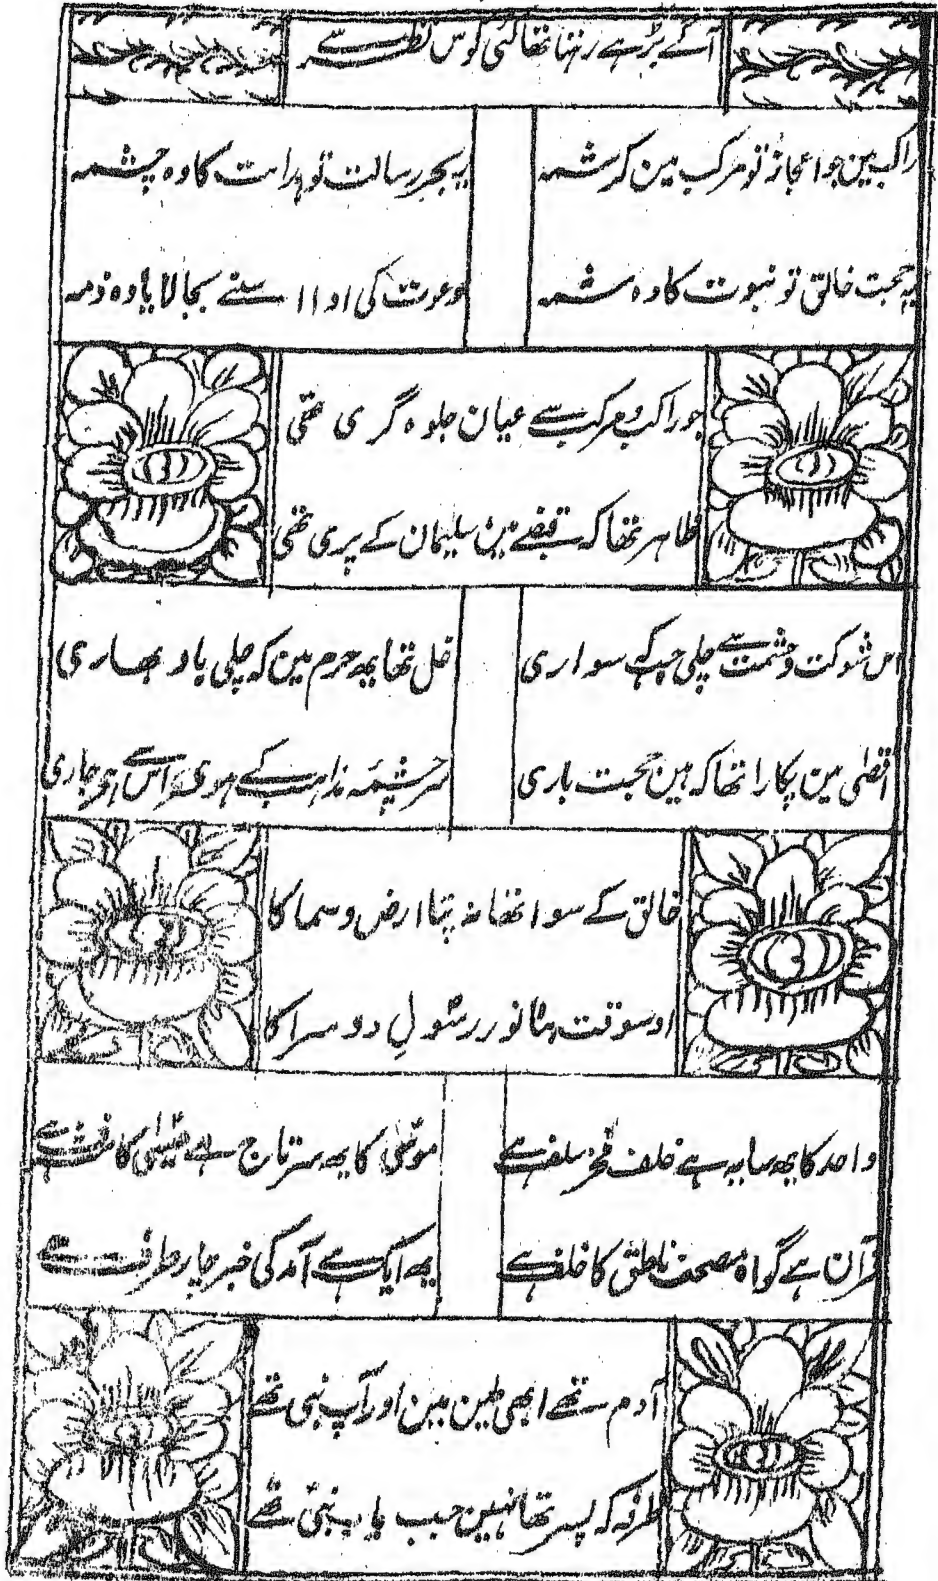 آگے بڑھے رہتا تھا کئی کوس نظر سے
راکب مین جو اعجاز تو مرکب مین کرشمہ
یہ بحر رسالت تو ہدایت کا وہ چشمہ
یہ حجت خالق تو نبوت کا وہ شمہ
دعوت کی اوا اسنے بجا لایا وہ ذمہ
جو راکب و مرکب سے عیان جلوہ گری تھی
ظاہر تھا کہ قبضے مین سلیمان کے پری تھی
اس شوکت و حشمت سے چلی جبکہ سواری
غل تھا یہ حرم مین کہ چلی باد بھاری
اقصٰی مین پکارا تھا کہ ہین حجت باری
سرچشمہ مذاہب کے ہوی اس سے ہو جاری
خالق کے سوا تھا نہ پتا ارض و سما کا
اوسوقت بنا نور رسُولِ دوسرا کا
واحد کا یہ سایہ ہے خلف فخر سلف ہے
موسٰی کا یہ سرتاج ہے عیسٰی کا شرف ہے
قرآن ہے گواہ مصحف ناطق کا خلف ہے
یہ ایک ہے آمد کی خبر چار طرف ہے
آدم تھے ابھی طین مین اور آپ نبی تھے
طرفہ کہ پسر تھا نہین جب باپ نبی تھے